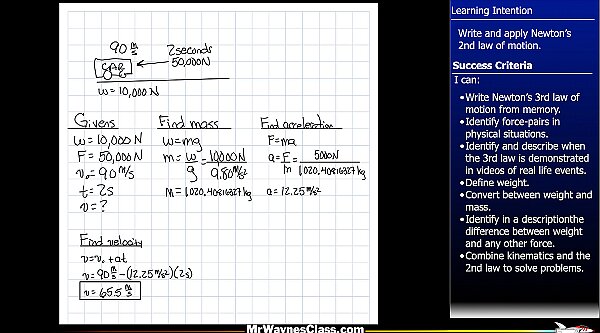 90 m/s
2 seconds
50,000N
w = 10,000 N
Givens
w = 10,000 N
F = 50,000 N
v₀ = 90 m/s
t = 2s
v = ?
Find mass
w = mg
m = w/g = 10,000N/9.80 m/s²
m = 1,020.40816327 kg
Find acceleration
F = ma
a = F/m = 5000N/1,020.40816327 kg
a = 12.25 m/s²
Find velocity
v = v₀ + at
v = 90 m/s - (12.25 m/s²)(2s)
v = 65.5 m/s
Learning Intention
Write and apply Newton's
2nd law of motion.
Success Criteria
I can:
•Write Newton's 3rd law of
motion from memory.
•Identify force-pairs in
physical situations.
•Identify and describe when
the 3rd law is demonstrated
in videos of real life events.
•Define weight.
•Convert between weight and
mass.
•Identify in a descriptionthe
difference between weight
and any other force.
•Combine kinematics and the
2nd law to solve problems.
MrWaynesClass.com